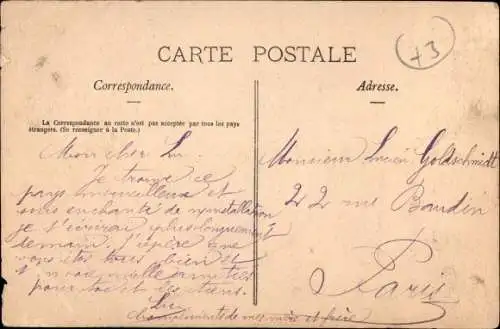 +3
CARTE POSTALE
Correspondance.
Adresse.
La Correspondance au recto n'est pas acceptée par tous les pays
étrangers. (Se renseigner à la Poste.)
Mon cher Lu.
Je trouve ce
pays merveilleux et
suis enchanté de installation
je t'écrirai plus longuement
demain. J'espère que
vous êtes tous bien et
mille amitiés
pour toi et les tiens.
Compliments de ma mère et frère
Monsieur Lucien Goldschmidt
22 rue Baudin
Paris